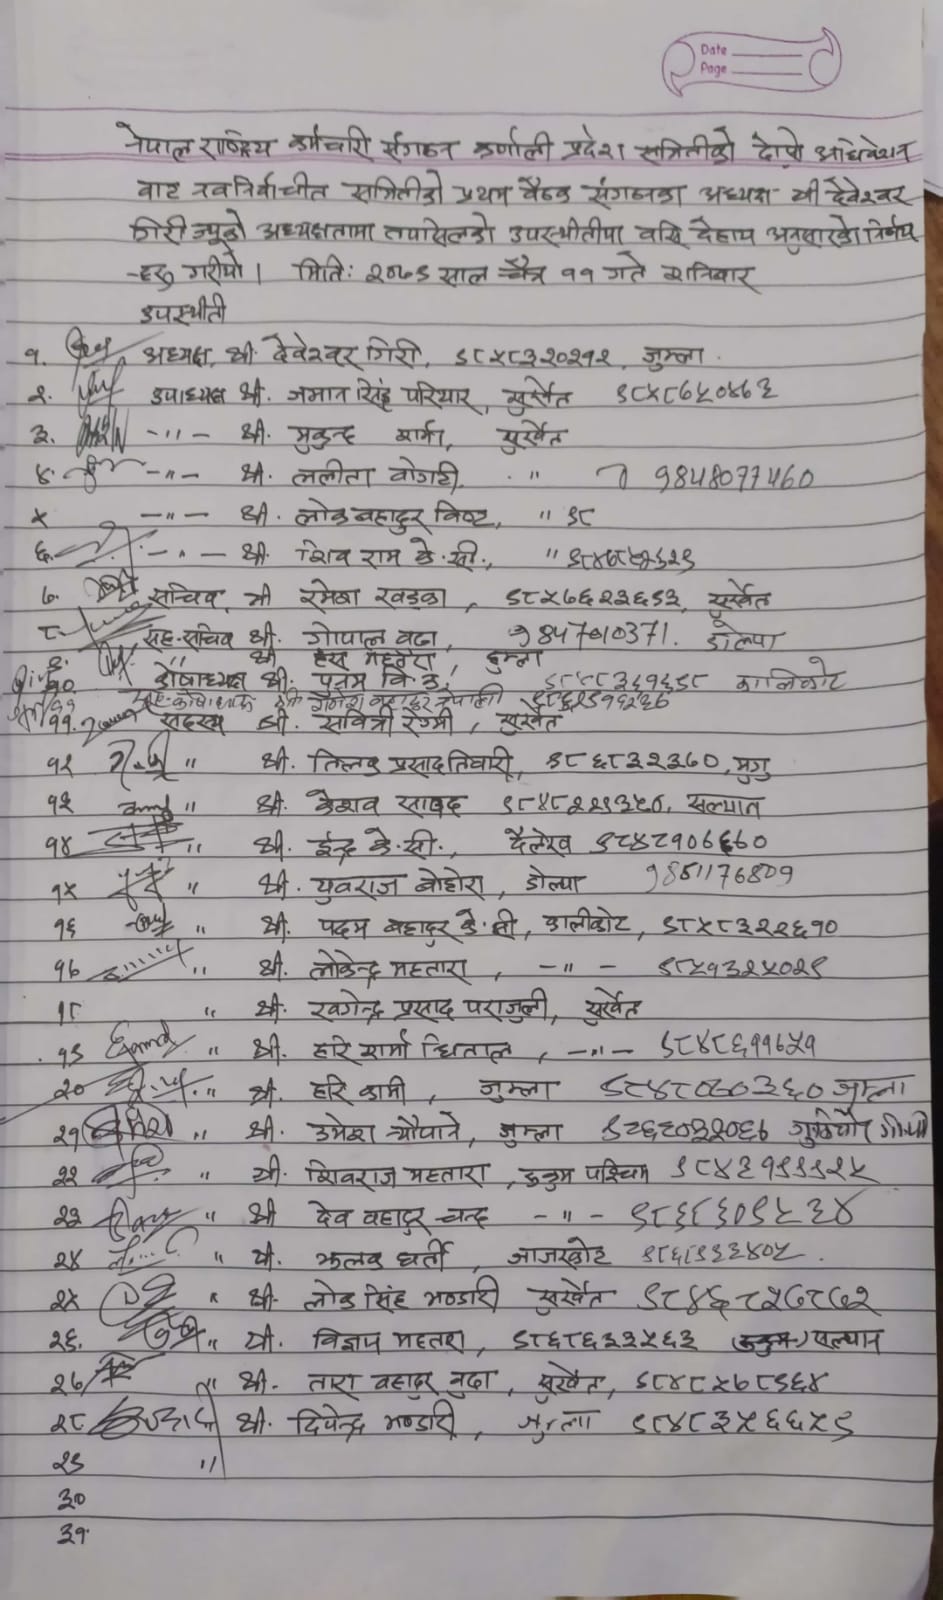 Date
Page
नेपाल राष्ट्रिय कर्मचारी संगठन कर्णाली प्रदेश समितिको दोस्रो अधिवेशन
बाट नवनिर्वाचीत समितिको प्रथम बैठक संगठनका अध्यक्ष श्री देवेश्वर
गिरी ज्यूको अध्यक्षतामा तपसिलको उपस्थीतीमा बसि देहाय अनुसारको निर्णय
-हरु गरीयो। मिति: २०७९ साल चैत्र ११ गते शनिवार
उपस्थीती
१. अध्यक्ष श्री. देवेश्वर गिरी, ९८५८३२०२१२, जुम्ला.
२. उपाध्यक्ष श्री. जमान सिंह परियार, सुर्खेत ९८५८७५०४६३
३. -〃- श्री. मुकुन्द शर्मा, सुर्खेत
४. -〃- श्री. ललीता बोगटी, 〃 9848077460
५ -〃- श्री. लोक बहादुर विष्ट, 〃 ९८
६. -〃- श्री. शिव राम के.सी., 〃
७. सचिव श्री रमेश खड्का, ९८५७६२२६९३, सुर्खेत
८ सह-सचिव श्री. गोपाल बुढा, 9847010371. डोल्पा
९. 〃 श्री हंस महतारा, जुम्ला
१० कोषाध्यक्ष श्री. पुनम वि.क. ९८५८३६१६९८ कालिकोट
सह-कोषाध्यक्ष श्री गणेश बहादुर नेपाली
११. सदस्य श्री. सवित्री रेग्मी, सुर्खेत
१२ 〃 श्री. तिलक प्रसाद तिवारी, ९८६८३२३७०, मुगु
१३ 〃 श्री. केशव सापद ९८४८२२९३५०, सल्यान
१४ 〃 श्री. ईन्द्र के.सी., दैलेख ९८४८१०६६७०
१५ 〃 श्री. युवराज बोहोरा, डोल्पा 9851176809
१६ 〃 श्री. पदम बहादुर के.सी, कालीकोट, ९८५८३२२६१०
१७ 〃 श्री. लोकेन्द्र महतारा, -〃- ९८५१३२५०२९
१८ 〃 श्री. खगेन्द्र प्रसाद पराजुली, सुर्खेत
१९ 〃 श्री. हरि शर्मा धिताल, -〃- ९८४८६११६५१
२० 〃 श्री. हरि कामी, जुम्ला ९८४८०८०३६० जुम्ला
२१ 〃 श्री. उमेश न्यौपाने, जुम्ला ९८६८०३२०६७
२२ 〃 श्री. शिवराज महतारा, रुकुम पश्चिम ९८४३१९९१२५
२३ 〃 श्री देव बहादुर चन्द -〃- ९८६८६०९५३४
२४ 〃 श्री. झलक घर्ती, जाजरकोट ९८६८९३३४०५
२५ 〃 श्री. लोक सिंह भण्डारी सुर्खेत ९८४६८२७८७२
२६. 〃 श्री. विज्ञान महतरा, ९८६८६३२५६३ (रुकुम) सल्यान
२७ 〃 श्री. तारा बहादुर बुढा, सुर्खेत, ९८४८५७८९६४
२८ 〃 श्री. दिपेन्द्र भण्डारी, जुम्ला ९८४८३५६६५९
२९ 〃
३०
३१.